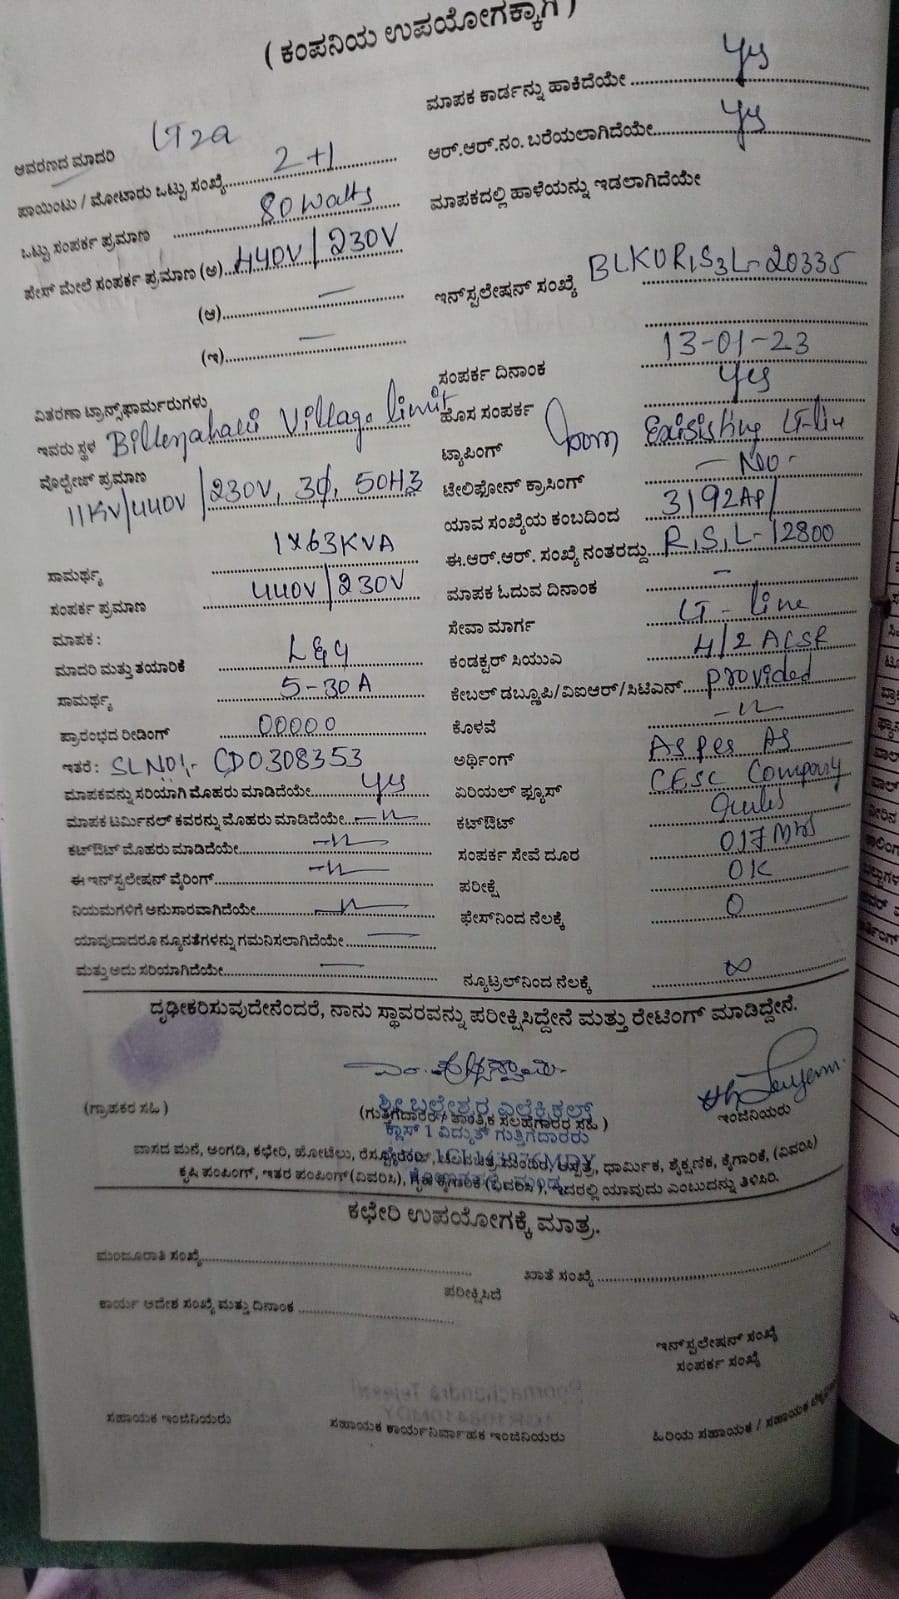 ( ಕಂಪನಿಯ ಉಪಯೋಗಕ್ಕಾಗಿ )
ಮಾಪಕ ಕಾರ್ಡನ್ನು ಹಾಕಿದೆಯೇ Yes
ಆವರಣದ ಮಾದರಿ LT2a
ಆರ್.ಆರ್.ನಂ. ಬರೆಯಲಾಗಿದೆಯೇ Yes
ಪಾಯಿಂಟು / ಮೋಟಾರು ಒಟ್ಟು ಸಂಖ್ಯೆ 2+1
ಮಾಪಕದಲ್ಲಿ ಹಾಳೆಯನ್ನು ಇಡಲಾಗಿದೆಯೇ
ಒಟ್ಟು ಸಂಪರ್ಕ ಪ್ರಮಾಣ 80 Watts
ಫೇಸ್ ಮೇಲೆ ಸಂಪರ್ಕ ಪ್ರಮಾಣ (ಅ) 440V / 230V
ಇನ್‌ಸ್ಟಲೇಷನ್ ಸಂಖ್ಯೆ BLKUR,S3L-20335
(ಆ) —
(ಇ) —
ಸಂಪರ್ಕ ದಿನಾಂಕ 13-01-23
ವಿತರಣಾ ಟ್ರಾನ್ಸ್‌ಫಾರ್ಮರುಗಳು
ಹೊಸ ಸಂಪರ್ಕ Yes
ಇವರು ಸ್ಥಳ Village limit
ಟ್ಯಾಪಿಂಗ್ from Exisisting LT-line
ವೋಲ್ಟೇಜ್ ಪ್ರಮಾಣ
11KV/440V / 230V, 3Ø, 50HZ
ಟೆಲಿಫೋನ್ ಕ್ರಾಸಿಂಗ್ - No -
ಯಾವ ಸಂಖ್ಯೆಯ ಕಂಬದಿಂದ 3192AP/
ಸಾಮರ್ಥ್ಯ 1x63KVA
ಈ.ಆರ್.ಆರ್. ಸಂಖ್ಯೆ ನಂತರದ್ದು R,S,L-12800
ಸಂಪರ್ಕ ಪ್ರಮಾಣ 440V / 230V
ಮಾಪಕ ಓದುವ ದಿನಾಂಕ -
ಮಾಪಕ :
ಸೇವಾ ಮಾರ್ಗ LT - line
ಮಾದರಿ ಮತ್ತು ತಯಾರಿಕೆ L&G
ಕಂಡಕ್ಟರ್ ಸಿಯುಎ 4/2 ACSR
ಸಾಮರ್ಥ್ಯ 5-30A
ಕೇಬಲ್ ಡಬ್ಲ್ಯೂಪಿ/ವಿಐಆರ್/ಸಿಟಿಎಸ್ provided
ಪ್ರಾರಂಭದ ರೀಡಿಂಗ್ 00000
ಕೊಳವೆ -11-
ಇತರೆ : SL NO:- CD0308353
ಅರ್ಥಿಂಗ್ As per As
ಮಾಪಕವನ್ನು ಸರಿಯಾಗಿ ಮೊಹರು ಮಾಡಿದೆಯೇ Yes
ಏರಿಯಲ್ ಫ್ಯೂಸ್ CESC Company
ಮಾಪಕ ಟರ್ಮಿನಲ್ ಕವರನ್ನು ಮೊಹರು ಮಾಡಿದೆಯೇ -11-
ಕಟ್‌ಔಟ್ rules
ಕಟ್‌ಔಟ್ ಮೊಹರು ಮಾಡಿದೆಯೇ -11-
ಸಂಪರ್ಕ ಸೇವೆ ದೂರ 017 Mtrs
ಈ ಇನ್‌ಸ್ಟಲೇಷನ್ ವೈರಿಂಗ್ -11-
ಪರೀಕ್ಷೆ OK
ನಿಯಮಗಳಿಗೆ ಅನುಸಾರವಾಗಿದೆಯೇ -11-
ಫೇಸ್‌ನಿಂದ ನೆಲಕ್ಕೆ 0
ಯಾವುದಾದರೂ ನ್ಯೂನತೆಗಳನ್ನು ಗಮನಿಸಲಾಗಿದೆಯೇ —
ಮತ್ತು ಅದು ಸರಿಯಾಗಿದೆಯೇ —
ನ್ಯೂಟ್ರಲ್‌ನಿಂದ ನೆಲಕ್ಕೆ ∞
ದೃಢೀಕರಿಸುವುದೇನೆಂದರೆ, ನಾನು ಸ್ಥಾವರವನ್ನು ಪರೀಕ್ಷಿಸಿದ್ದೇನೆ ಮತ್ತು ರೇಟಿಂಗ್ ಮಾಡಿದ್ದೇನೆ.
(ಗ್ರಾಹಕರ ಸಹಿ )
ಶ್ರೀ ಬಲ್ಲೇಶ್ವರ ಎಲೆಕ್ಟ್ರಿಕಲ್ಸ್
(ಗುತ್ತಿಗೆದಾರರ / ತಾಂತ್ರಿಕ ಸಲಹಾಗಾರರ ಸಹಿ )
ಇಂಜಿನಿಯರು
ಕ್ಲಾಸ್ 1 ವಿದ್ಯುತ್ ಗುತ್ತಿಗೆದಾರರು
ವಾಸದ ಮನೆ, ಅಂಗಡಿ, ಕಛೇರಿ, ಹೋಟೆಲು, ಆಸ್ಪತ್ರೆ, ಧಾರ್ಮಿಕ, ಶೈಕ್ಷಣಿಕ, ಕೈಗಾರಿಕೆ, (ವಿವರಿಸಿ)
ಕೃಷಿ ಪಂಪಿಂಗ್, ಇತರ ಪಂಪಿಂಗ್ (ವಿವರಿಸಿ), ಗೃಹ ಕೈಗಾರಿಕೆ (ವಿವರಿಸಿ ), ಇದರಲ್ಲಿ ಯಾವುದು ಎಂಬುದನ್ನು ತಿಳಿಸಿರಿ.
ಕಛೇರಿ ಉಪಯೋಗಕ್ಕೆ ಮಾತ್ರ.
ಮಂಜೂರಾತಿ ಸಂಖ್ಯೆ
ಖಾತೆ ಸಂಖ್ಯೆ
ಪರೀಕ್ಷಿಸಿದೆ
ಕಾರ್ಯ ಆದೇಶ ಸಂಖ್ಯೆ ಮತ್ತು ದಿನಾಂಕ
ಇನ್‌ಸ್ಟಲೇಷನ್ ಸಂಖ್ಯೆ
ಸಂಪರ್ಕ ಸಂಖ್ಯೆ
ಸಹಾಯಕ ಇಂಜಿನಿಯರು
ಸಹಾಯಕ ಕಾರ್ಯನಿರ್ವಾಹಕ ಇಂಜಿನಿಯರು
ಹಿರಿಯ ಸಹಾಯಕ / ಸಹಾಯಕ